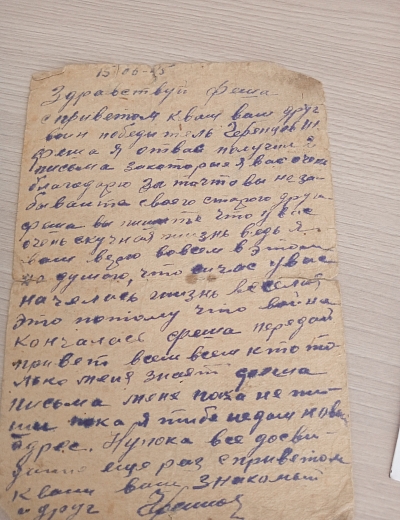 15/06-45
Здравствуй феша
с приветом к вам ваш друг
воин победитель
феша я от вас получил 2
письма за которыя я вас очень
благодарю За то что вы не за-
бываите своего старого друга
феша вы пишите что у вас
очень скучная жизнь ведь я
вам верю во всем в этом
но думаю, что сичас у вас
началась жизнь веселей
это потому что война
кончалась феша передай
привет всем всем кто то
лько меня знает феша
письма мене пока не пи-
ши пока я тибе недам новый
адрес. Ну пока все досви-
дание еще раз с приветом
к вам ваш знакомый
и друг